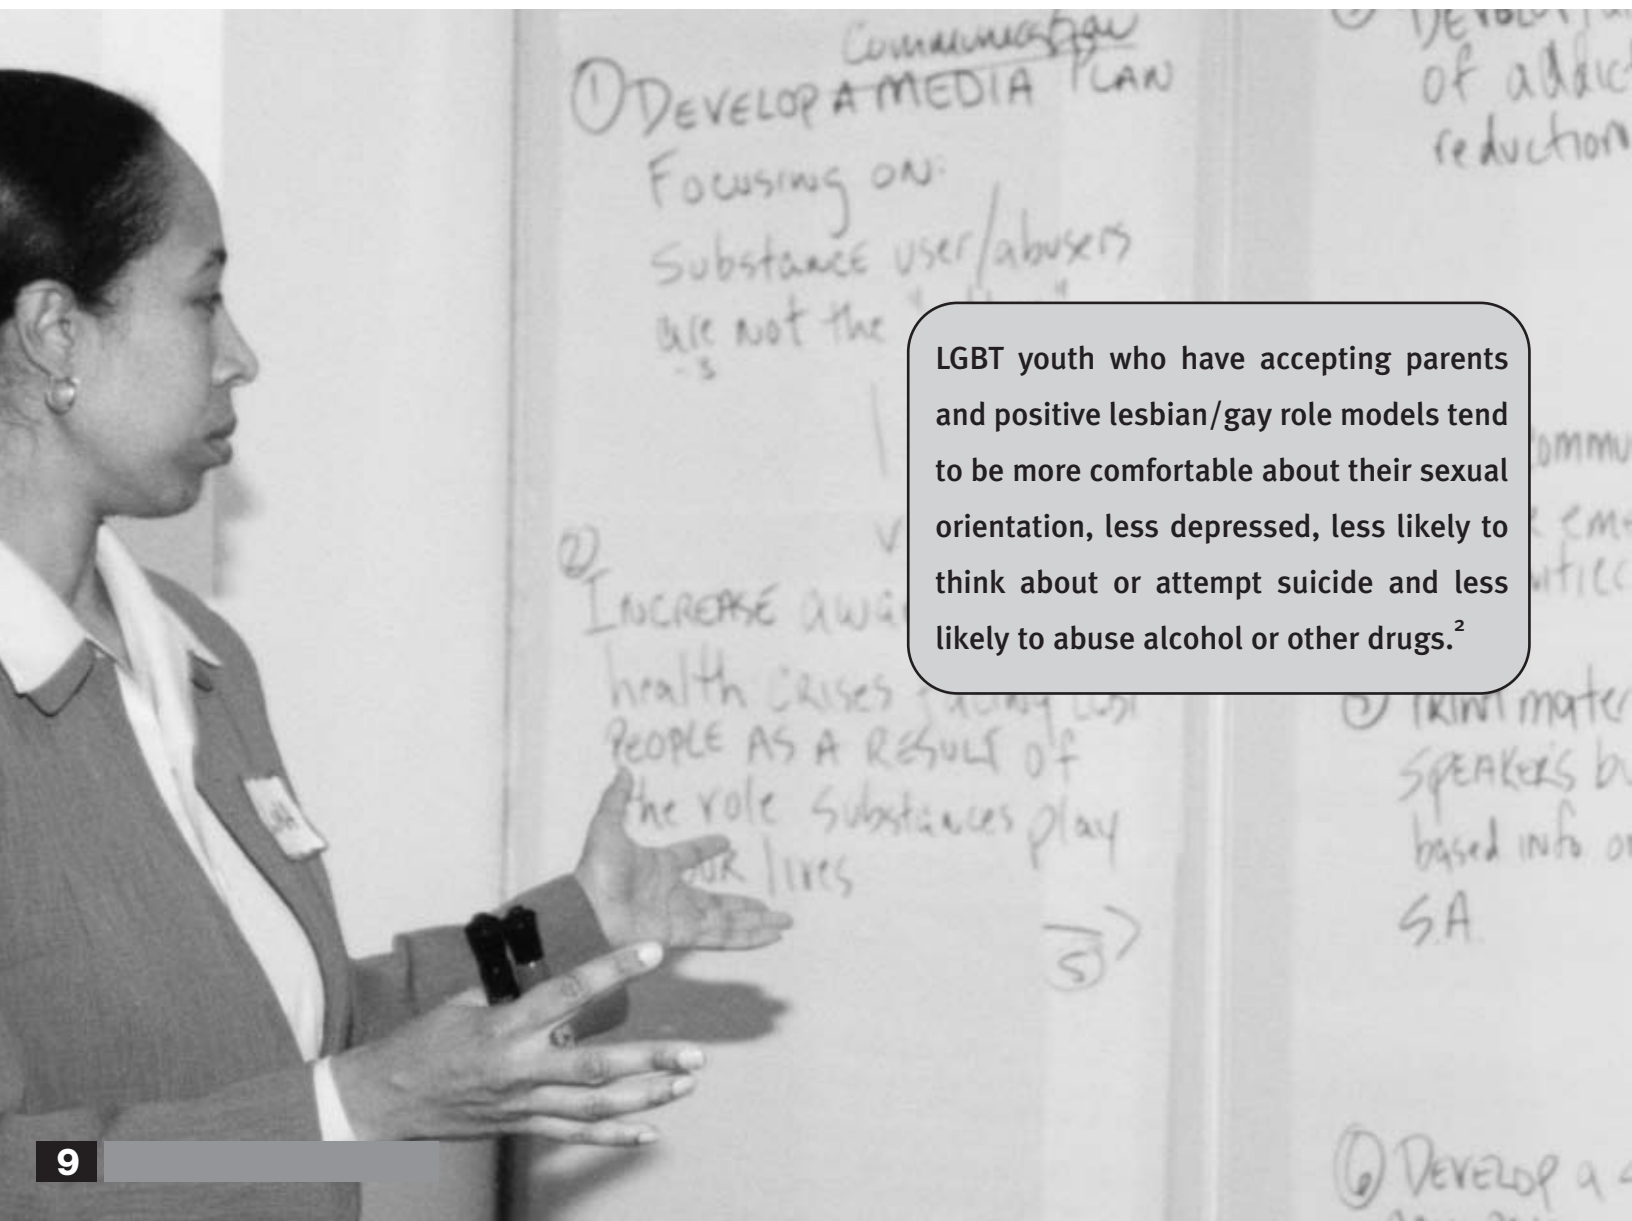 Communication
① DEVELOP A MEDIA PLAN
Focusing on:
Substance user/abusers
are not the
②
INCREASE
health crises facing
PEOPLE AS A RESULT of
the role substances play
OUR lives
5
of
reduction
LGBT youth who have accepting parents
and positive lesbian/gay role models tend
to be more comfortable about their sexual
orientation, less depressed, less likely to
think about or attempt suicide and less
likely to abuse alcohol or other drugs.²
PRINT
SPEAKERS
based info
S.A.
⑥ DEVELOP a
9